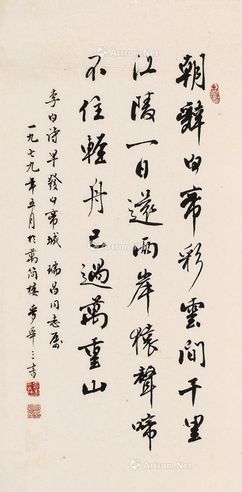 朝辞白帝彩雲間千里
江陵一日還兩岸猿聲啼
不住輕舟已過萬重山
李白诗早發白帝城 瑞昌同志属
一九七九年五月於萬簡樓
Artron.Net